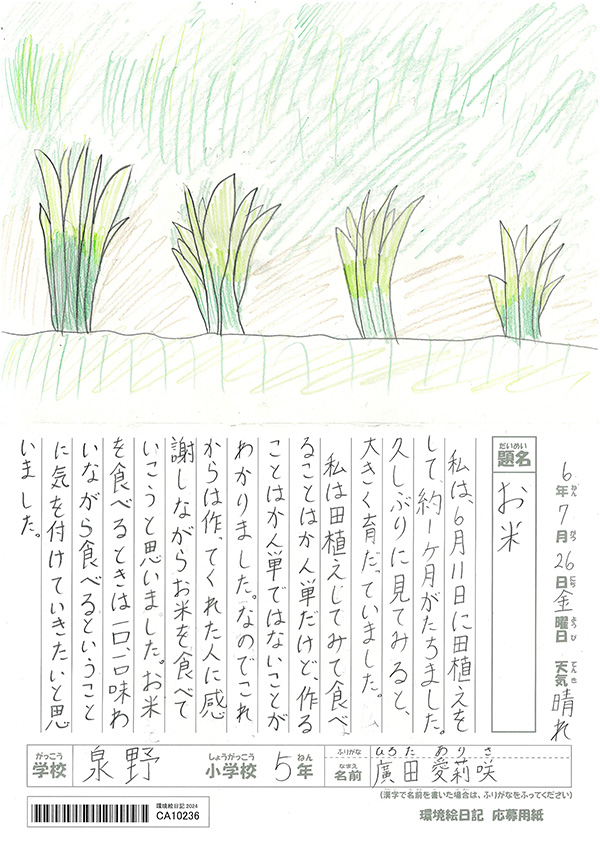 6年7月26日金曜日 天気 晴れ
ねん がつ にち ようび てんき
だいめい
題名 お米
私は、6月11日に田植えを
して、約一ケ月がたちました。
久しぶりに見てみると、
大きく育だっていました。
私は田植えしてみて食べ
ることはかん単だけど、作る
ことはかん単ではないことが
わかりました。なのでこれ
からは作ってくれた人に感
謝しながらお米を食べて
いこうと思いました。お米
を食べるときは一口、一口味わ
いながら食べるということ
に気を付けていきたいと思
いました。
がっこう しょうがっこう ねん
学校 泉野 小学校 5年
ふりがな ひろた ありさ
なまえ
名前 廣田 愛莉咲
(漢字で名前を書いた場合は、ふりがなをふってください)
環境絵日記 2024
CA10236
環境絵日記 応募用紙